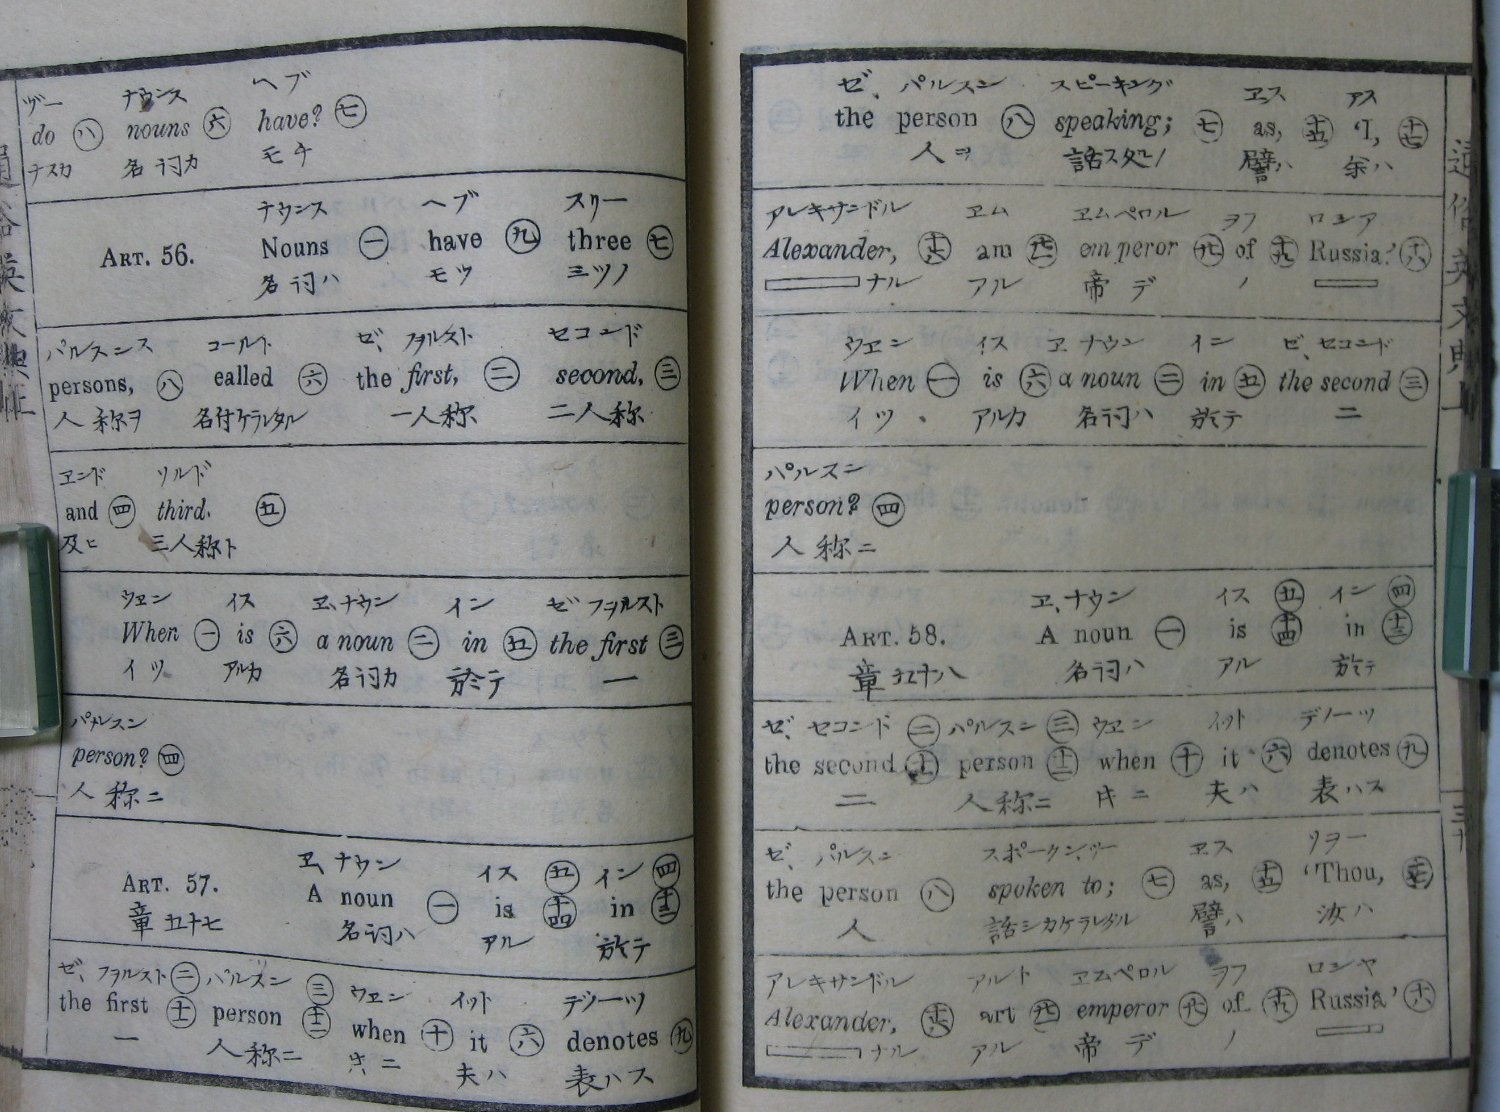 ヅー ナウンス ヘブ
do ㊇ nouns ㊅ have? ㊆
ナスカ 名詞カ モチ
ナウンス ヘブ スリー
ART. 56. Nouns ㊀ have ㊈ three ㊆
名詞ハ モツ 三ツノ
パルスンス コールト ゼ、ヲルスト セコンド
persons, ㊇ ealled ㊅ the first, ㊁ second, ㊂
人称ヲ 名付ケラレタル 一人称 二人称
ヱンド ソルド
and ㊃ third. ㊄
及ヒ 三人称ト
ウヱン イス ヱ、ナウン イン ゼ フヲルスト
When ㊀ is ㊅ a noun ㊁ in ㊄ the first ㊂
イツ アルカ 名詞カ 於テ 一
パルスン
person? ㊃
人称ニ
ヱ、ナウン イス ㊄ イン ㊃
ART. 57. A noun ㊀ is (十四) in (十三)
章五十七 名詞ハ アル 於テ
ゼ、フヲルスト ㊁ パルスン ㊂ ウヱン イット デノーツ
the first (十一) person (十二) when ㊉ it ㊅ denotes ㊈
一 人称ニ キニ 夫ハ 表ハス
ゼ、パルスン スピーキング ヱス アス
the person ㊇ speaking; ㊆ as, (十五) 'I, (十七)
人ヲ 話ス処ノ 譬ハ 余ハ
アレキサンドル ヱム ヱムペロル ヲフ ロシア
Alexander, (十六) am (廿一) emperor (廿) of (十九) Russia.' (十八)
ナル アル 帝デ ノ
ウヱン イス ヱ ナウン イン ゼ、セコンド
When ㊀ is ㊅ a noun ㊁ in ㊄ the second ㊂
イツ、 アルカ 名詞ハ 於テ 二
パルスン
person? ㊃
人称ニ
ヱ、ナウン イス ㊄ イン ㊃
ART. 58. A noun ㊀ is (十四) in (十三)
章五十八 名詞ハ アル 於テ
ゼ、セコンド ㊁ パルスン ㊂ ウヱン イット デノーツ
the second (十一) person (十二) when ㊉ it ㊅ denotes ㊈
二 人称ニ キニ 夫ハ 表ハス
ゼ、パルスン スポークン、ツー ヱス ソヲー
the person ㊇ spoken to; ㊆ as, (十五) 'Thou,
人 話シカケラレタル 譬ハ 汝ハ
アレキサンドル アルト ヱムペロル ヲフ ロシヤ
Alexander, (十六) art (廿一) emperor (廿) of (十九) Russia.' (十八)
ナル アル 帝デ ノ